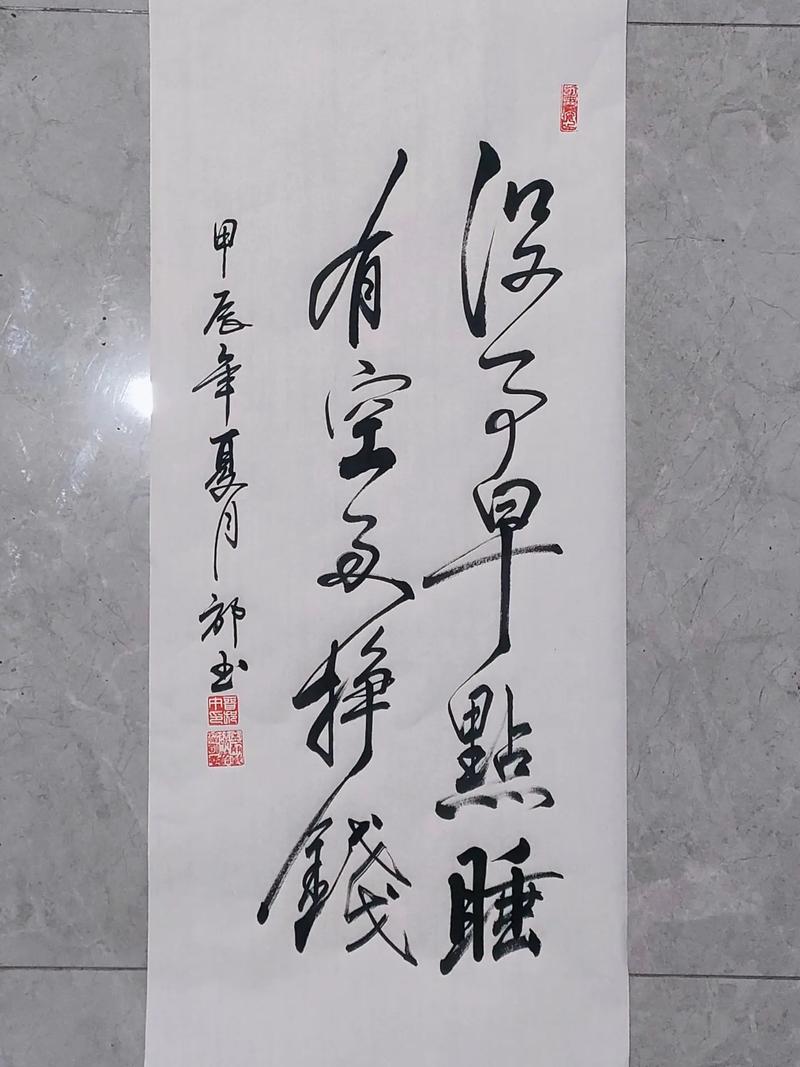 没事早點睡
有空多掙錢
甲辰年夏月